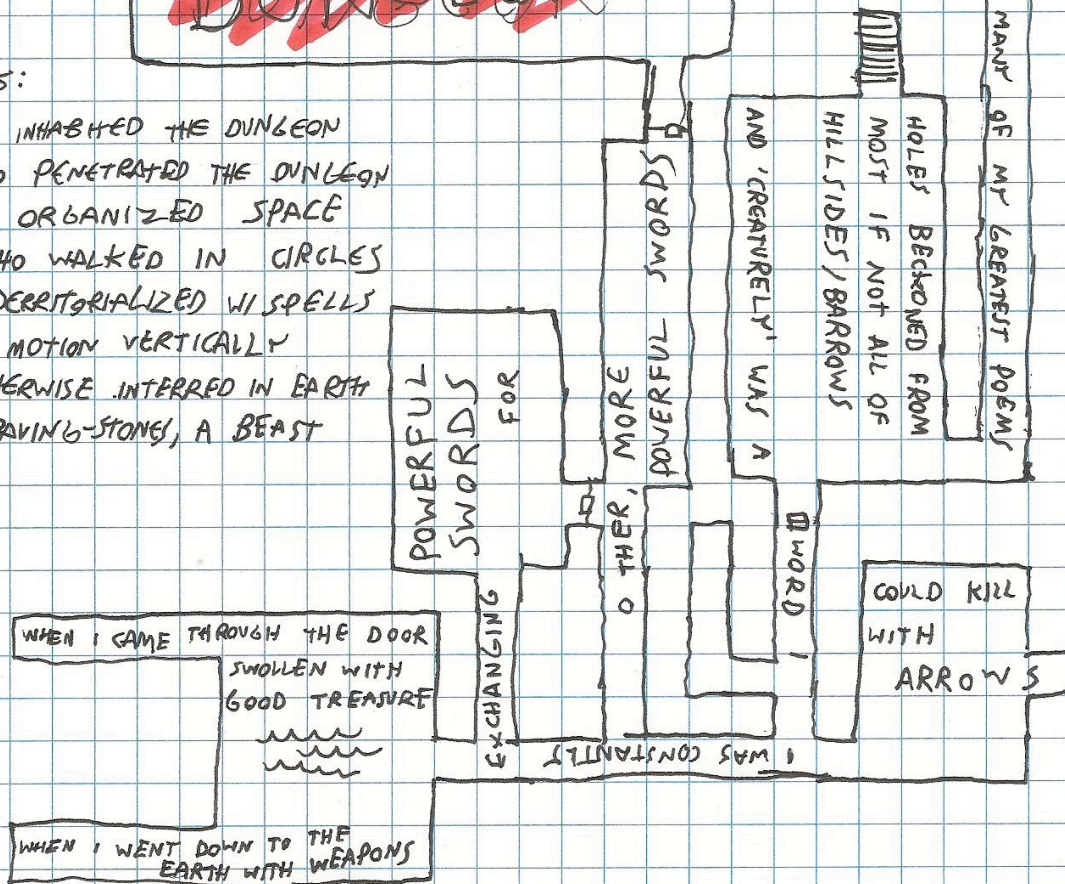 INHABITED THE DUNGEON
PENETRATED THE DUNGEON
ORGANIZED SPACE
WALKED IN CIRCLES
DERRITORIALIZED W/ SPELLS
MOTION VERTICALLY
ERWISE INTERRED IN EARTH
AVING-STONES, A BEAST
MANY OF MY GREATEST POEMS
HOLES BECKONED FROM
MOST IF NOT ALL OF
HILLSIDES/BARROWS
AND 'CREATURELY' WAS A
WORD I
COULD KILL
WITH
ARROWS
I WAS CONSTANTLY
EXCHANGING
POWERFUL
SWORDS
FOR
OTHER, MORE
POWERFUL SWORDS
WHEN I CAME THROUGH THE DOOR
SWOLLEN WITH
GOOD TREASURE
WHEN I WENT DOWN TO THE
EARTH WITH WEAPONS